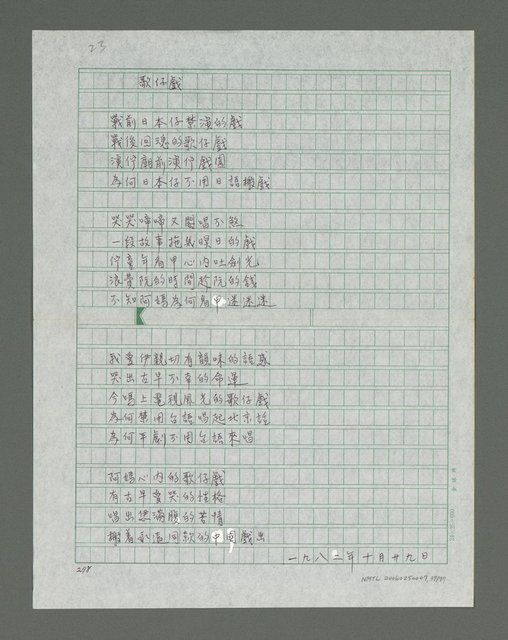 23
歌仔戲
戰前日本仔禁演的戲
戰後回魂的歌仔戲
演佇廟前演佇戲園
為何日本仔不用日語搬戲
哭哭啼啼又閣唱不煞
一段故事拖幾暝日的戲
佇童年看甲心內吐劍光
浪費阮的時間趁阮的錢
不知阿媽為何看甲迷迷迷
我愛伊親切有韻味的語系
哭出古早不幸的命運
今唱上電視風光的歌仔戲
為何禁用台語唱起北京話
為何平劇不用台語來唱
阿媽心內的歌仔戲
有古早愛哭的性格
唱出怨滿腹的苦情
搬着永遠同款的中國戲出
一九八二年十月廿九日
298
NMTL 20060250047